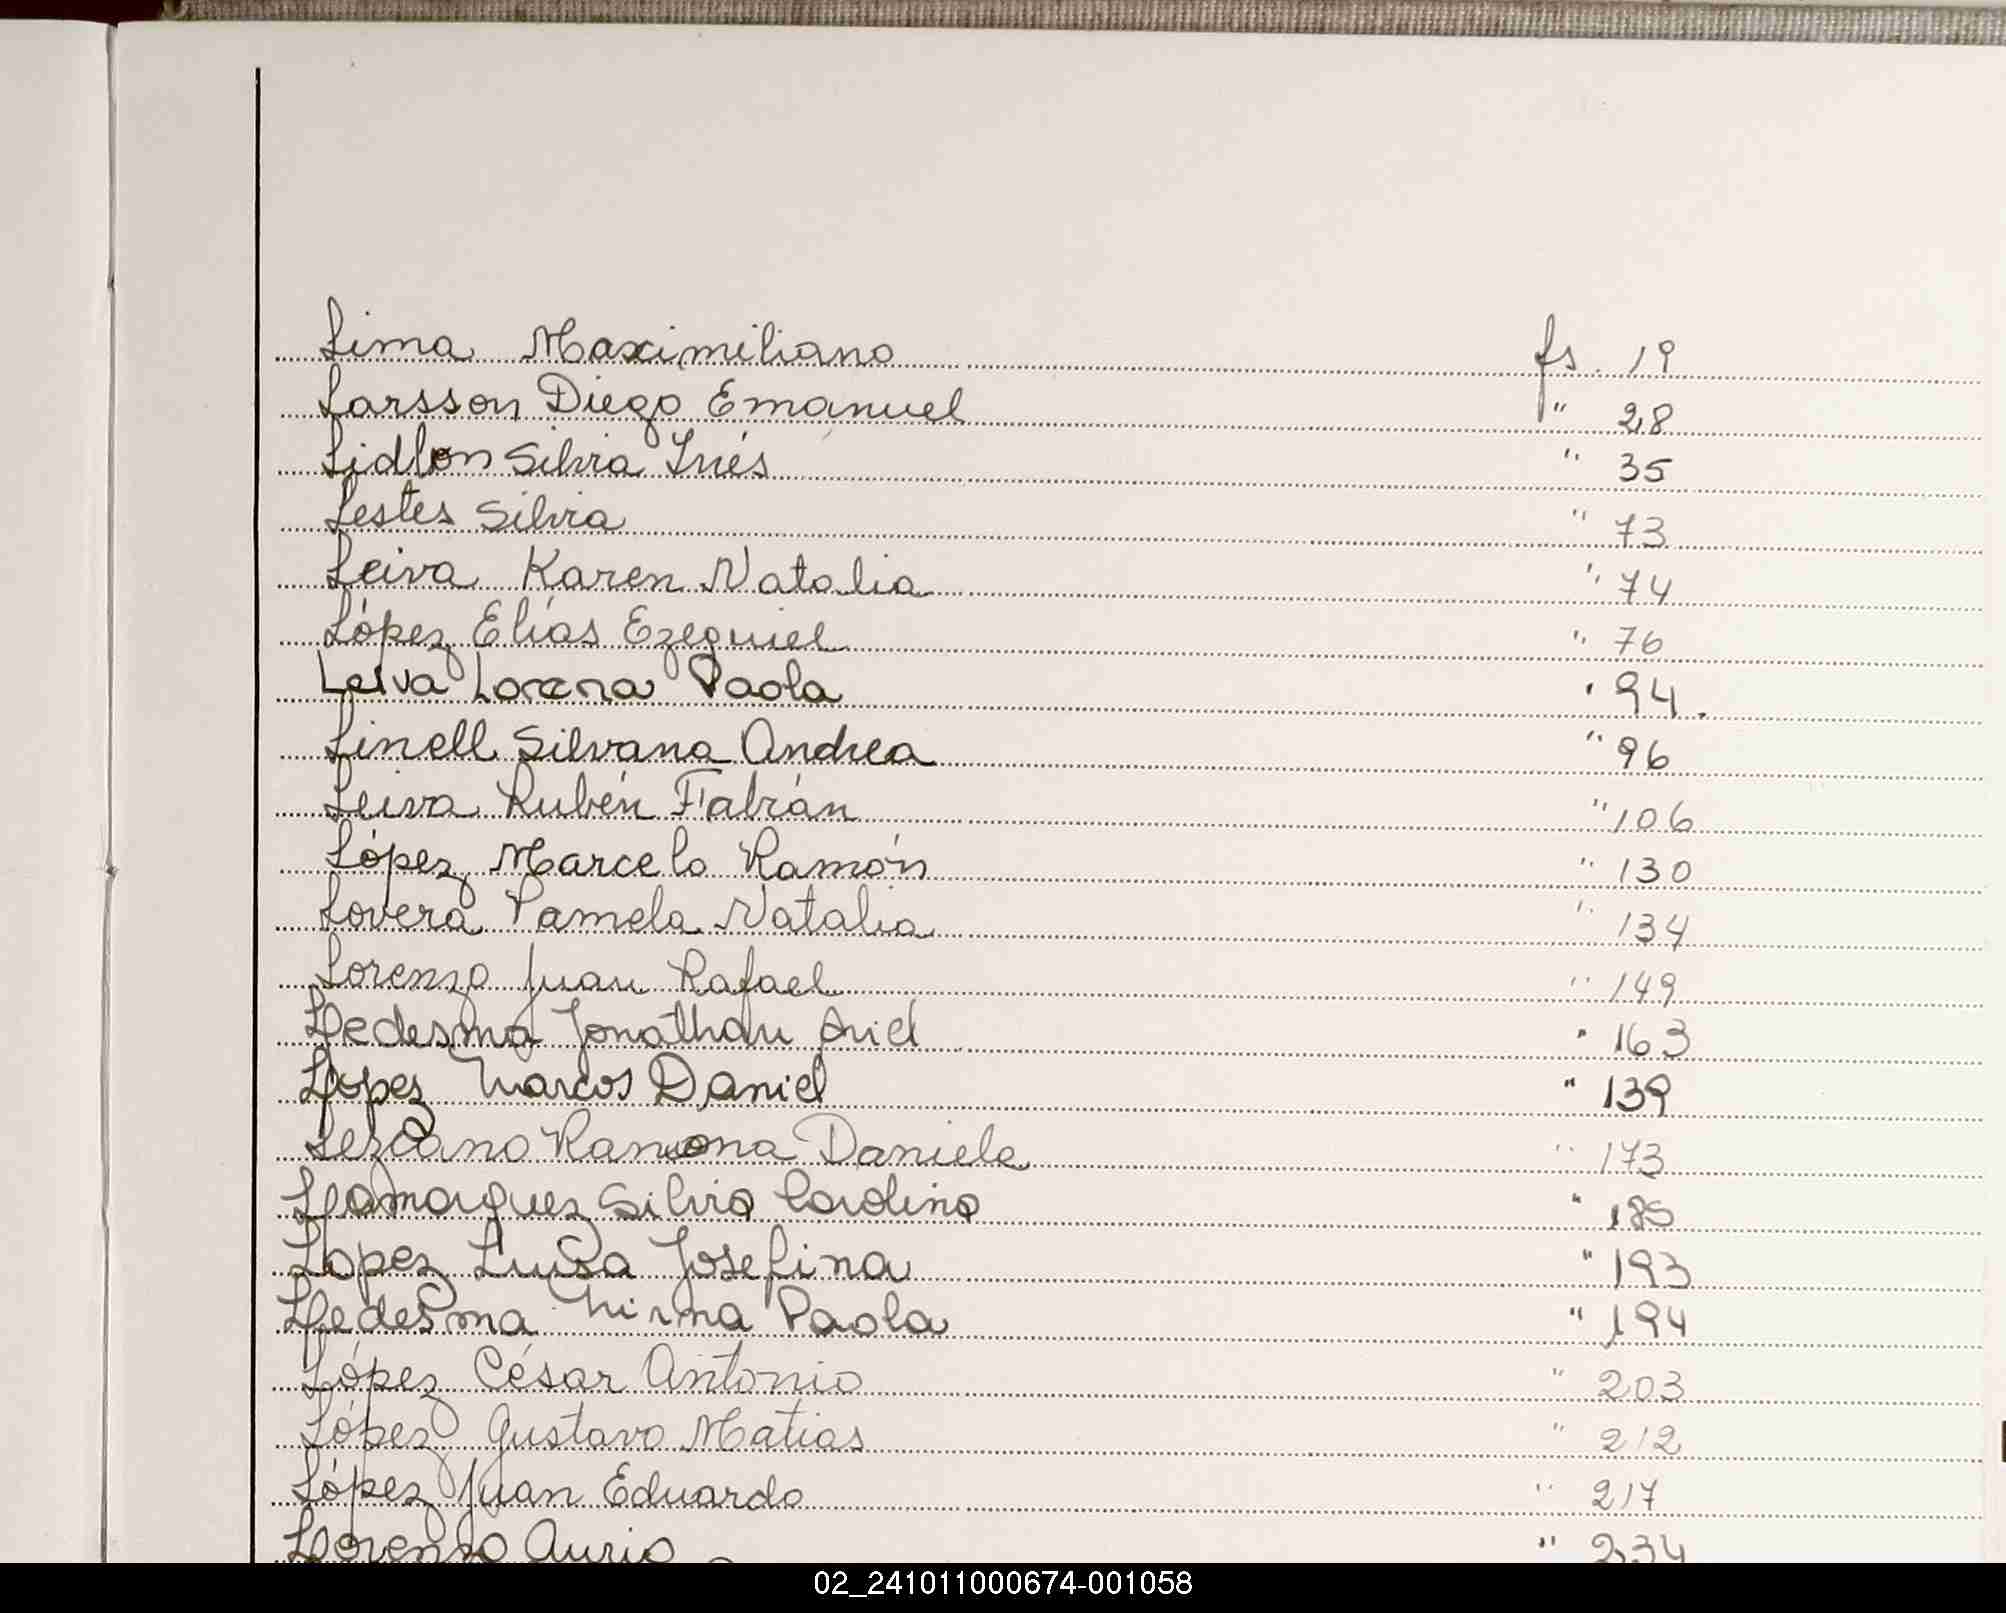 Lima Maximiliano fs. 19
Larsson Diego Emanuel " 28
Lidlon Silvia Inés " 35
Lestes Silvia " 73
Leiva Karen Natalia " 74
López Elías Ezequiel " 76
Leiva Lorena Paola " 94.
Linell Silvana Andrea " 96
Leiva Rubén Fabián " 106
López Marcelo Ramón " 130
Lovera Pamela Natalia " 134
Lorenzo Juan Rafael " 149
Ledesma Jonathan Ariel " 163
Lopez Marcos Daniel " 139
Lezcano Ramona Daniela " 173
Lamarquez Silvia Carolina " 185
Lopez Luisa Josefina " 193
Ledesma Mirna Paola " 194
López César Antonio " 203
López Gustavo Matias " 212
López Juan Eduardo " 217
Lorenzo " 234
02_241011000674-001058